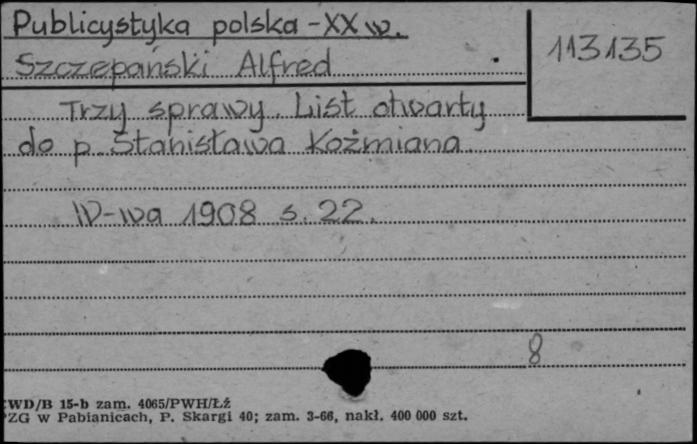 Publicystyka polska - XX w.
113135
Szczepański Alfred
Trzy sprawy. List otwarty
do p. Stanisława Koźmiana
W-wa 1908 s. 22.
8
WD/B 15-b zam. 4065/PWH/Łź
PZG w Pabianicach, P. Skargi 40; zam. 3-66, nakł. 400 000 szt.